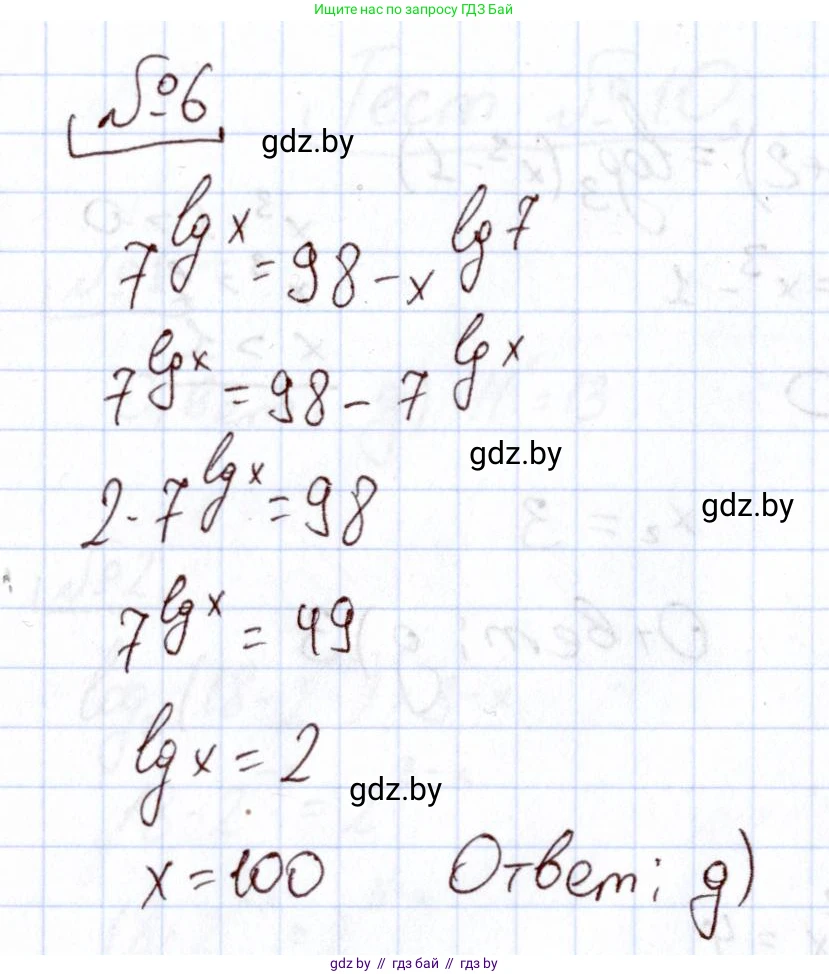 Ищите нас по запросу ГДЗ Бай
№6
gdz.by
7^lg x = 98 - x^lg 7
7^lg x = 98 - 7^lg x
gdz.by
2·7^lg x = 98
gdz.by
7^lg x = 49
lg x = 2
gdz.by
x = 100 Ответ: д)
gdz.by // гдз бай // gdz.by